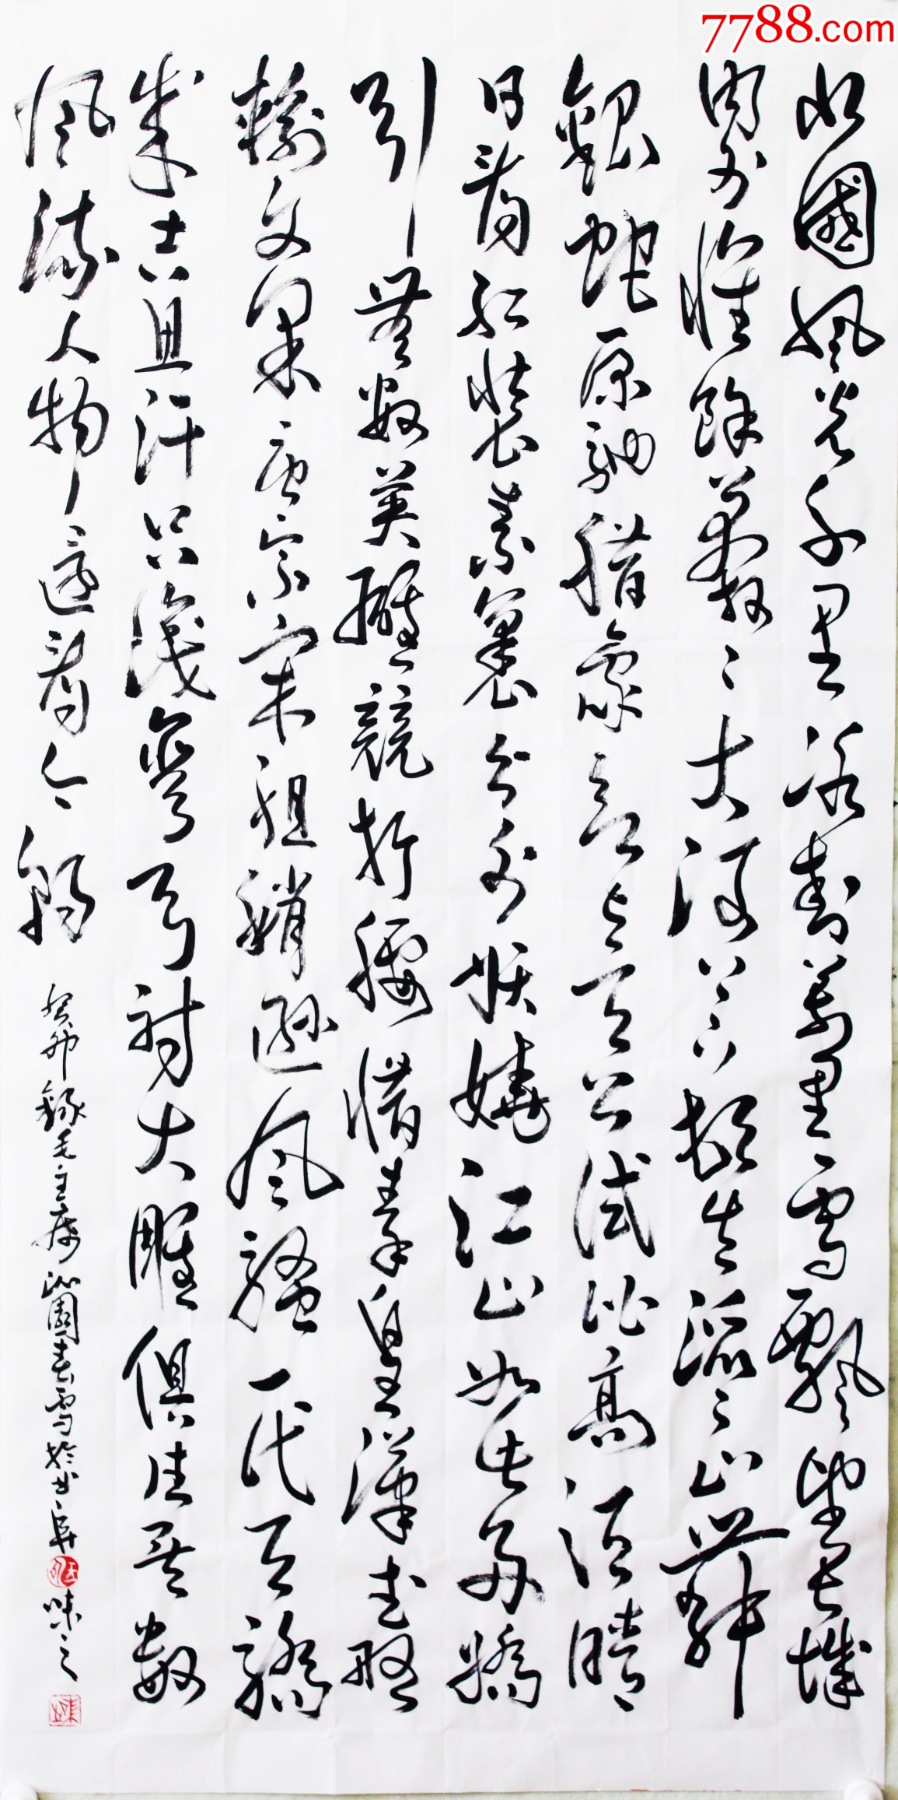 北國風光千里冰封萬里雪飄望長城
內外惟餘莽〻大河上下頓失滔〻山舞
銀蛇原馳腊象欲与天公試比高須晴
日看紅裝素裹分外妖嬈江山如此多嬌
引無數英雄競折腰惜秦皇漢武略
輸文采唐宗宋祖稍遜風騷一代天驕
成吉思汗只識彎弓射大雕俱往矣數
風流人物還看今朝
癸卯錄毛主席沁園春雪於曲阜味之
7788.com